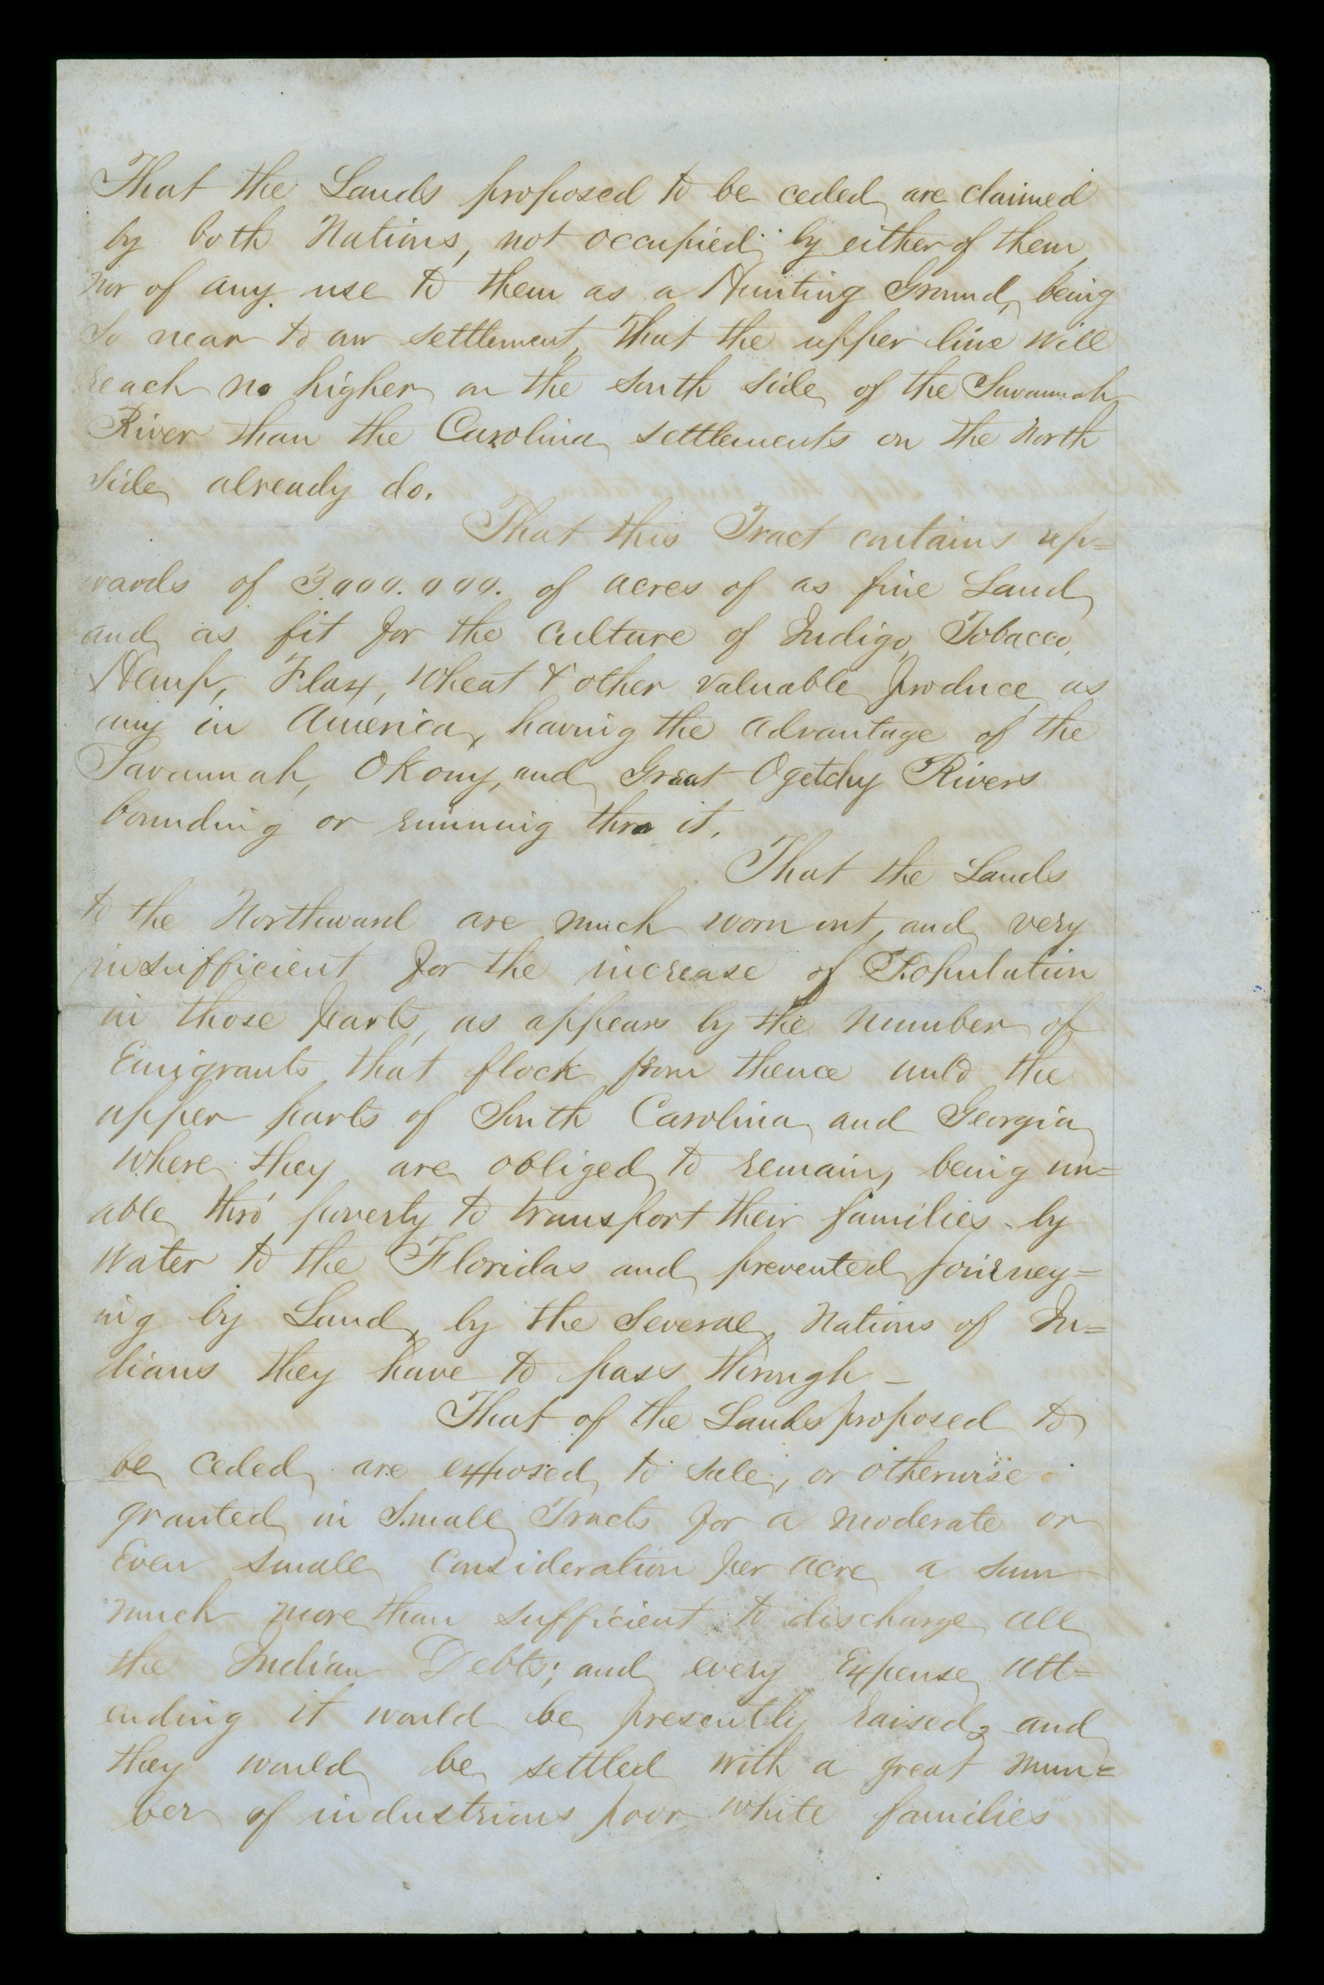 That the Lands proposed to be ceded are claimed
by both Nations, not occupied by either of them,
nor of any use to them as a Hunting Ground, being
so near to our settlement, That the upper line will
reach no higher on the South side of the Savannah
River than the Carolina settlements on the North
side already do.
That this Tract contains up=
wards of 3.000.000. of acres of as fine Land
and as fit for the culture of Indigo, Tobacco,
Hemp, Flax, Wheat & other valuable produce as
any in America, having the advantage of the
Savannah, Okony, and Great Ogetchy Rivers
bounding or running thro it.
That the Lands
to the Northward are much worn out, and very
insufficient for the increase of Population
in those parts, as appears by the number of
Emigrants that flock from thence into the
upper parts of South Carolina and Georgia
where they are obliged to remain, being un=
able thro' poverty to transport their families by
water to the Floridas and prevented journey=
ing by Land, by the several Nations of In=
dians they have to pass through -
That of the Lands proposed to
be ceded are exposed to sale, or otherwise
granted in Small Tracts for a moderate or
Even small consideration per acre a sum
much more than sufficient to discharge all
the Indian Debts; and every Expense att=
ending it would be presently raised, and
they would be settled with a great num=
ber of industrious poor white families